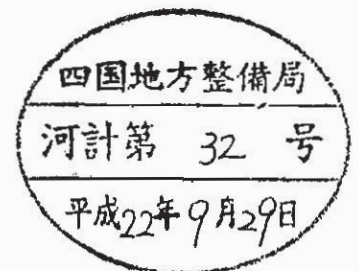 四国地方整備局
河計第 32 号
平成22年9月29日